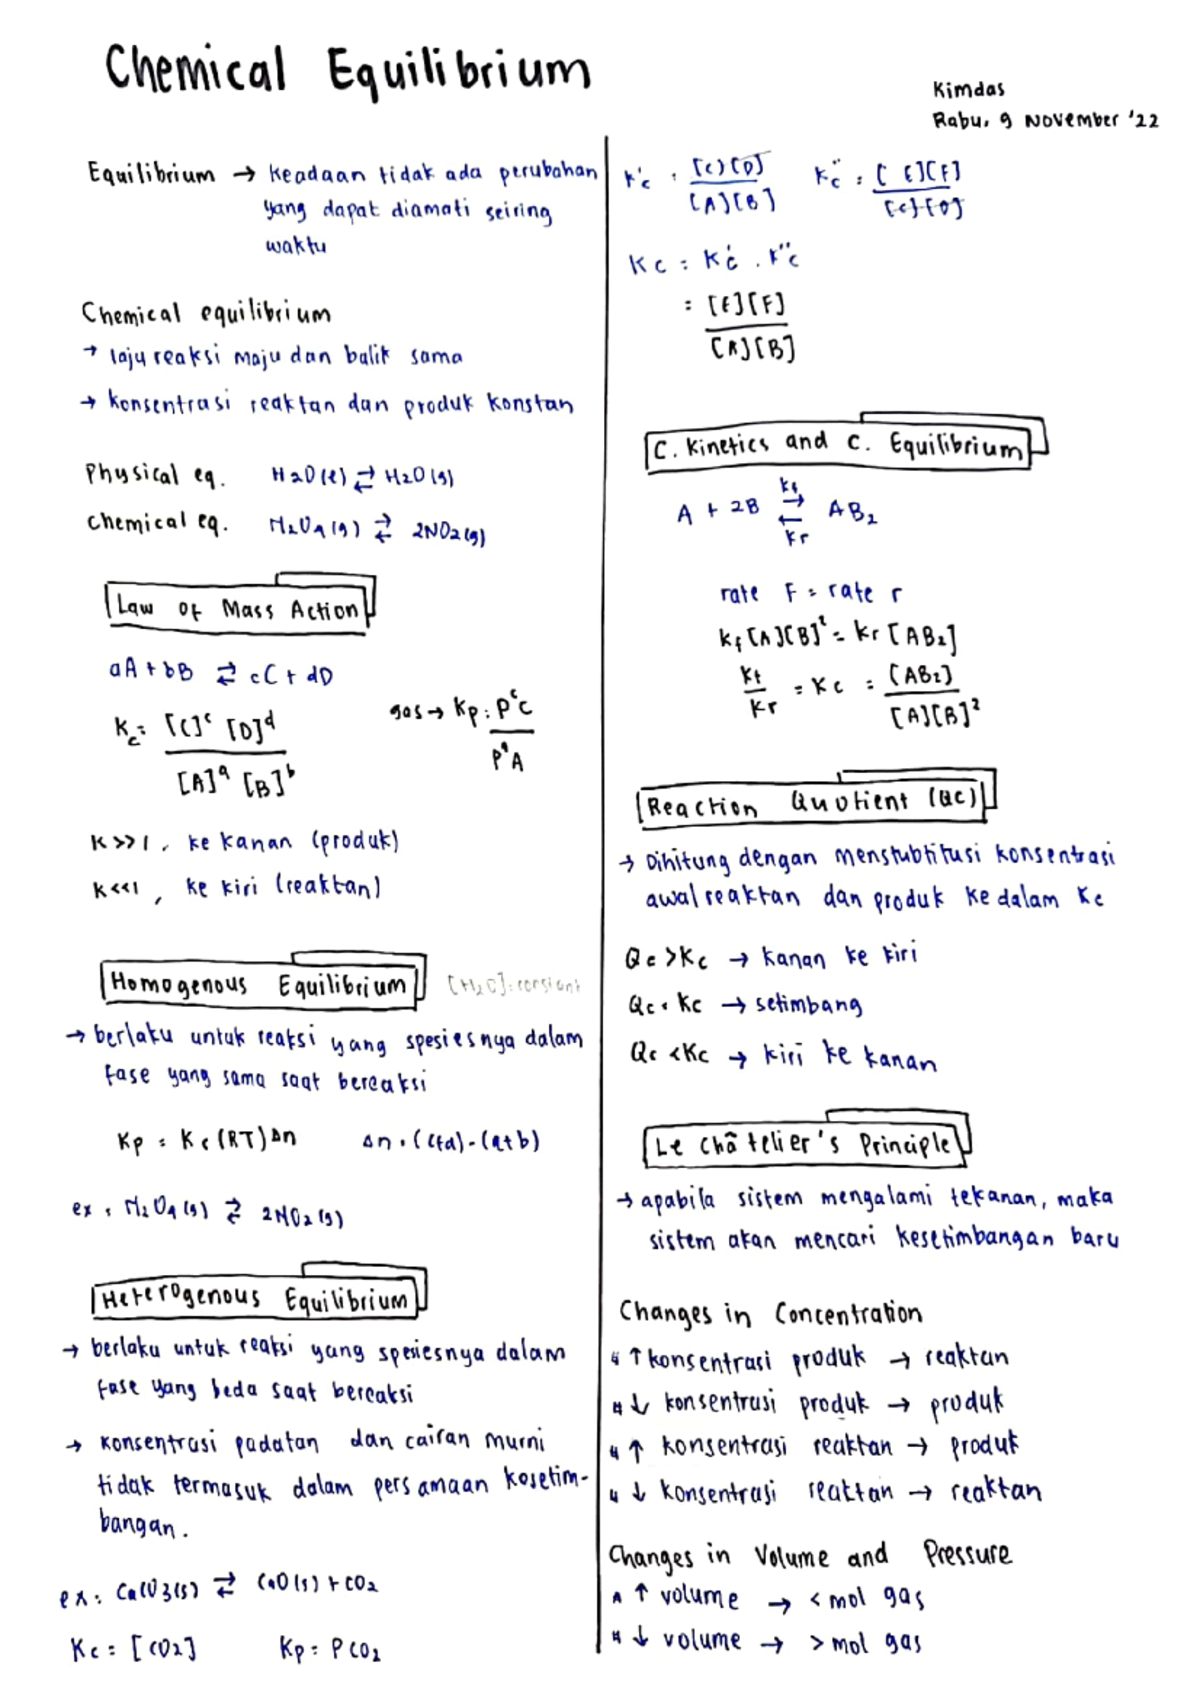 Chemical Equilibrium
Kimdas
Rabu, 9 November '22
Equilibrium → keadaan tidak ada perubahan
yang dapat diamati seiring
waktu
Chemical equilibrium
→ laju reaksi maju dan balik sama
→ konsentrasi reaktan dan produk konstan
Physical eq. H2O(l) ⇄ H2O(g)
Chemical eq. N2O4(g) ⇄ 2NO2(g)
Law of Mass Action
aA + bB ⇄ cC + dD
Kc = [C]^c [D]^d / [A]^a [B]^b
gas → Kp = P^c C / P^a A
K >> 1, ke kanan (produk)
K <<1, ke kiri (reaktan)
Homogenous Equilibrium [H2O]: constant
→ berlaku untuk reaksi yang spesiesnya dalam
fase yang sama saat bereaksi
Kp = Kc(RT)Δn Δn = (c+d)-(a+b)
ex: N2O4(g) ⇄ 2NO2(g)
Heterogenous Equilibrium
→ berlaku untuk reaksi yang spesiesnya dalam
fase yang beda saat bereaksi
→ konsentrasi padatan dan cairan murni
tidak termasuk dalam persamaan kesetim-
bangan.
ex: CaCO3(s) ⇄ CaO(s) + CO2
Kc = [CO2] Kp = PCO2
K'c = [C][D] / [A][B] K''c = [E][F] / [C][D]
Kc = K'c . K''c
= [E][F] / [A][B]
C. Kinetics and C. Equilibrium
kf
A + 2B ⇄ AB2
kr
rate F = rate r
kf[A][B]² = kr[AB2]
kf/kr = Kc = [AB2] / [A][B]²
Reaction Quotient (Qc)
→ Dihitung dengan menstubtitusi konsentrasi
awal reaktan dan produk kedalam Kc
Qc > Kc → kanan ke kiri
Qc = Kc → setimbang
Qc < Kc → kiri ke kanan
Le Châtelier's Principle
→ apabila sistem mengalami tekanan, maka
sistem akan mencari kesetimbangan baru
Changes in Concentration
↑ konsentrasi produk → reaktan
↓ konsentrasi produk → produk
↑ konsentrasi reaktan → produk
↓ konsentrasi reaktan → reaktan
Changes in Volume and Pressure
↑ volume → < mol gas
↓ volume → > mol gas